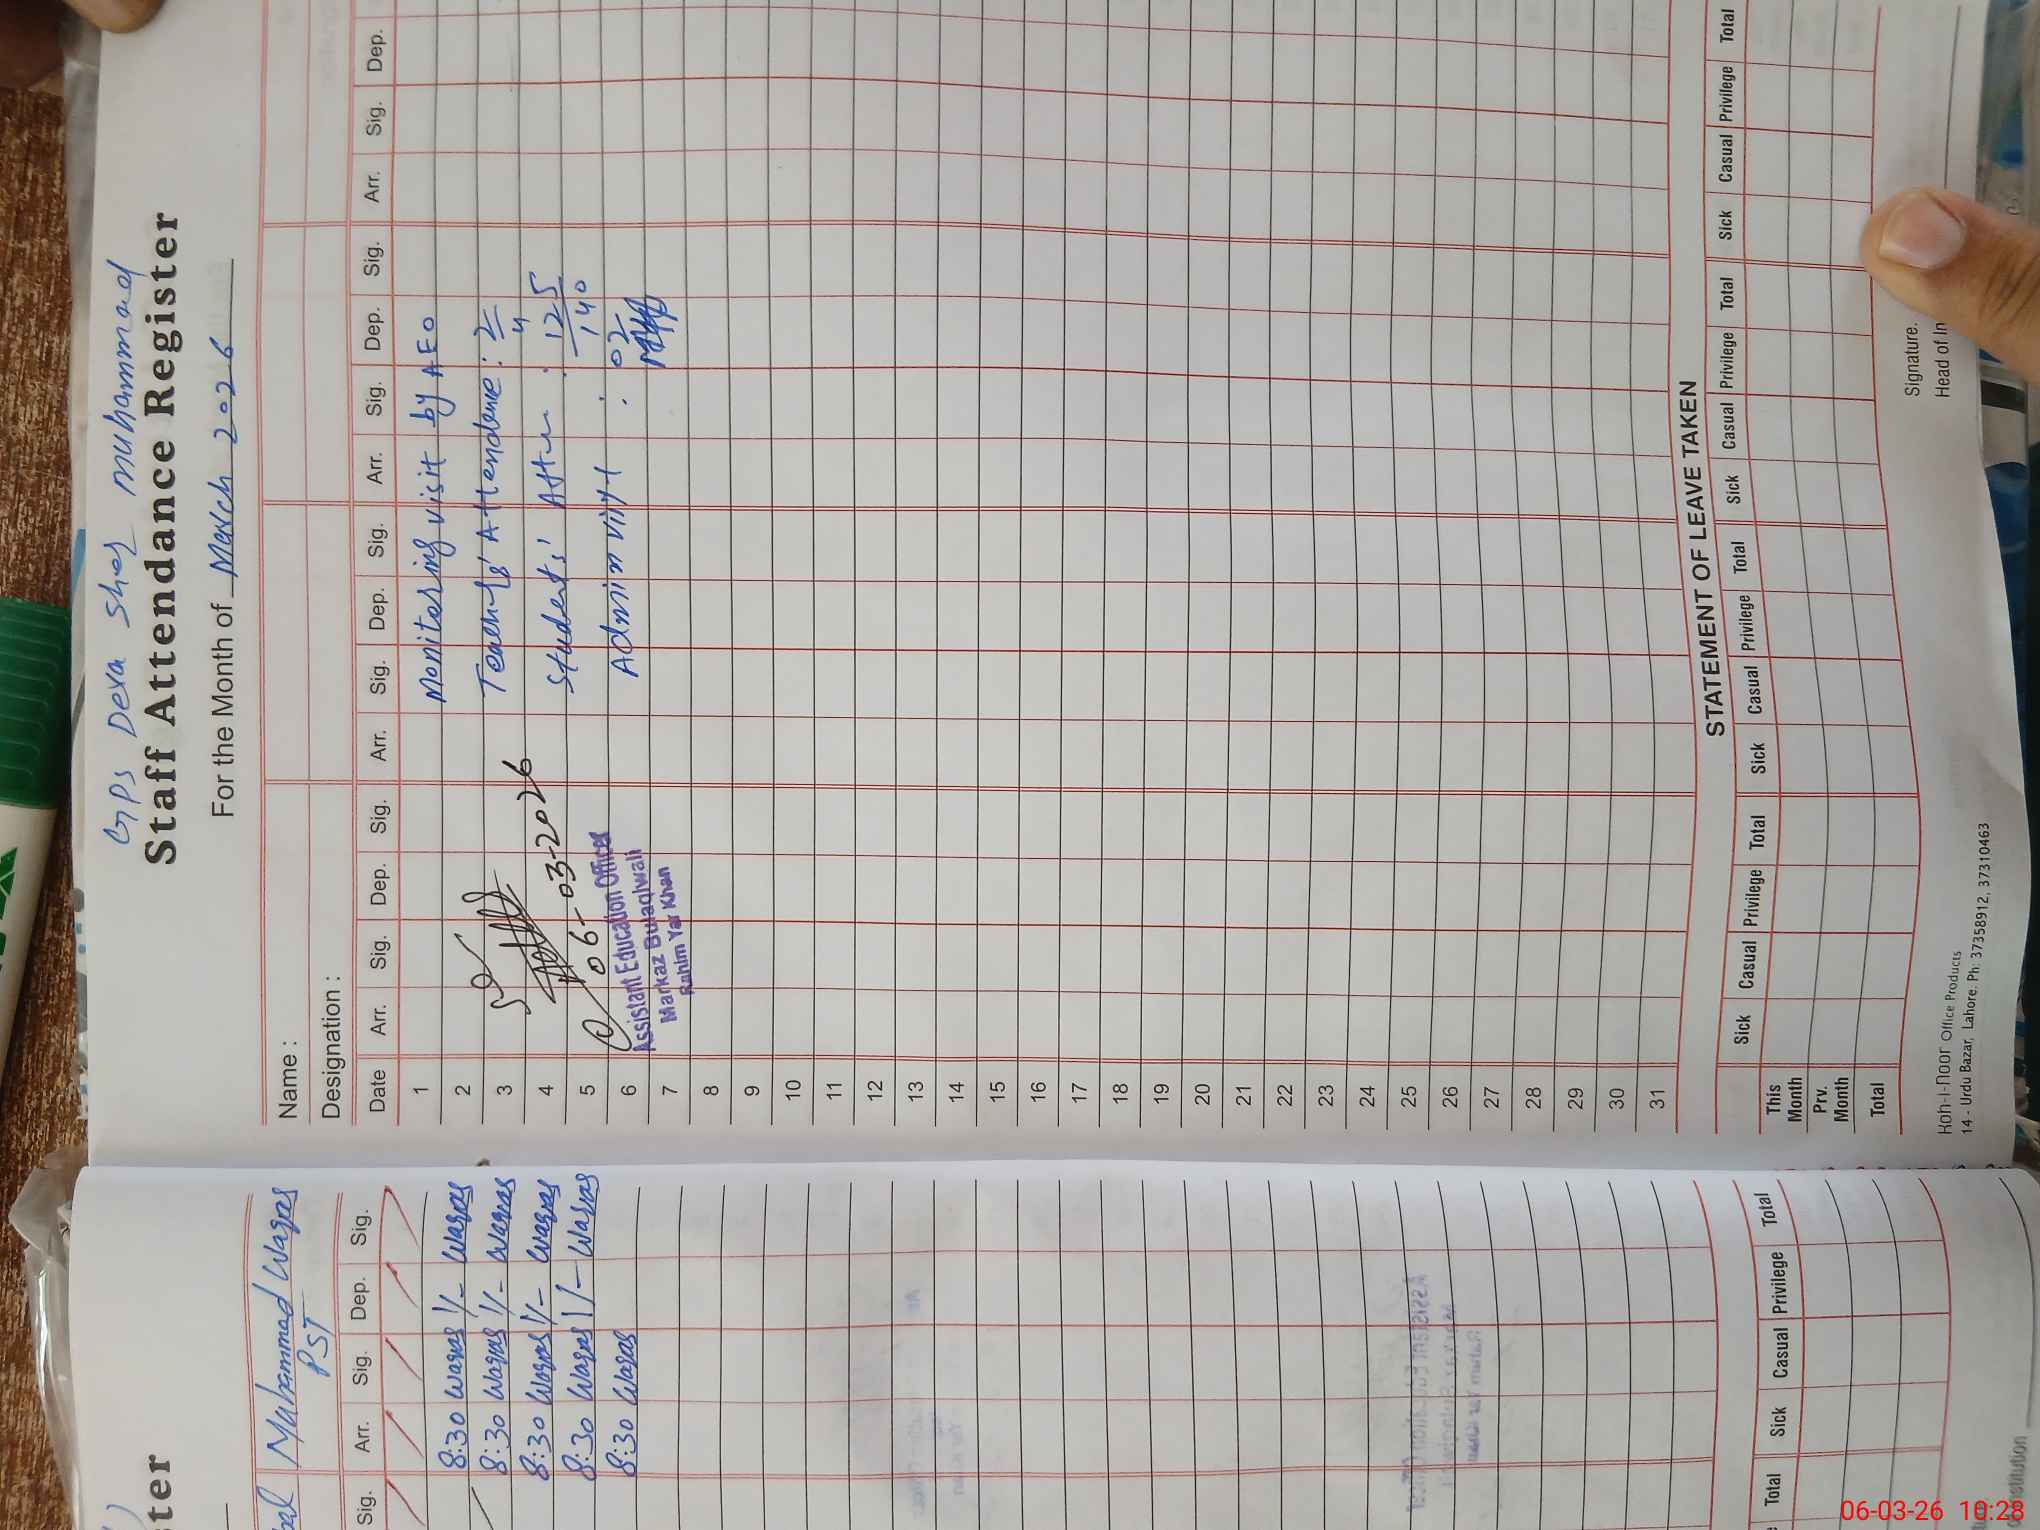 GPS Dera Sher Muhammad
Staff Attendance Register
For the Month of March 2026
Name :
Designation :
Date Arr. Sig. Dep. Sig. Arr. Sig. Dep. Sig. Arr. Sig. Dep. Sig. Arr. Sig. Dep.
1 Monitoring visit by AEO
2
3 Teachers' Attendance : 2/4
4 06-03-2026
5 Students' Atten : 125/140
6 Admin visit : 02
Assistant Education Officer
Markaz Bulaqiwali
Rahim Yar Khan
7
8
9
10
11
12
13
14
15
16
17
18
19
20
21
22
23
24
25
26
27
28
29
30
31
STATEMENT OF LEAVE TAKEN
Sick Casual Privilege Total Sick Casual Privilege Total Sick Casual Privilege Total Sick Casual Privilege Total
This Month
Prv. Month
Total
Signature.
Head of In
Koh-I-Noor Office Products
14 - Urdu Bazar, Lahore. Ph: 37358912, 37310463
ster
Muhammad Waqas
PST
Sig. Arr. Sig. Dep. Sig.
8:30 Waqas 1/- Waqas
8:30 Waqas 1/- Waqas
8:30 Waqas 1/- Waqas
8:30 Waqas 1/- Waqas
8:30 Waqas
Total Sick Casual Privilege Total
nstitution
06-03-26 10:28